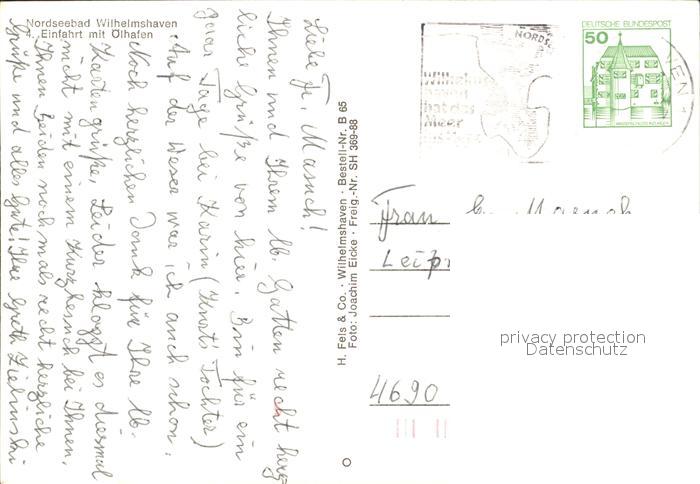 Nordseebad Wilhelmshaven
4. Einfahrt mit Ölhafen
Liebe Fr. Masuch!
Ihnen und Ihrem lb. Gatten recht herz
liche Grüße von hier. Bin für ein
paar Tage bei Karin (Kurts Tochter)
Auf der Weser war ich auch schon.
Noch herzlichen Dank für Ihre lb.
Kartengrüße. Leider klappt es diesmal
nicht mit einem Kurzbesuch bei Ihnen.
Ihnen beiden nochmals recht herzliche
Grüße und alles Gute! Ihre Greth Zielinski
H. Fels & Co. · Wilhelmshaven · Bestell-Nr. B 65
Foto: Joachim Eicke · Freig.-Nr. SH 369-88
NORDS
Wilhelms
haven
hat das
Meer
DEUTSCHE BUNDESPOST
50
Frau
Leipz
4690
privacy protection
Datenschutz